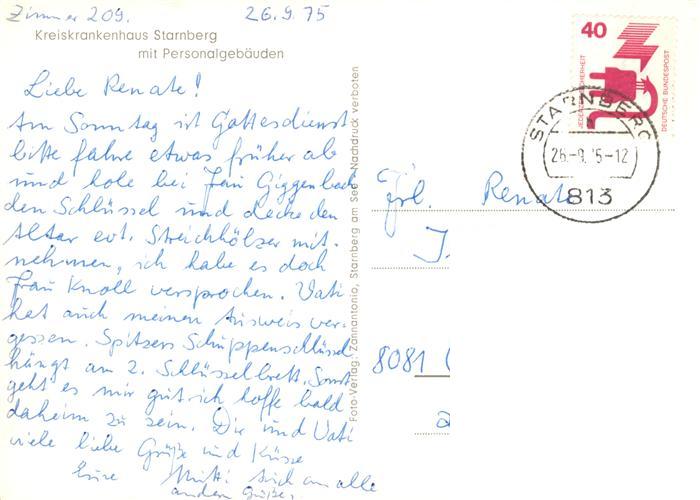 Zimmer 209.
26.9.75
Kreiskrankenhaus Starnberg
mit Personalgebäuden
Liebe Renate!
Am Sonntag ist Gottesdienst
bitte fahre etwas früher ab
und hole bei Frau Giggenbach
den Schlüssel und decke den
Altar evt. Streichhölzer mit-
nehmen, ich habe es doch
Frau Knoll versprochen. Vati
hat auch meinen Ausweis ver-
gessen. Spitzers Schuppenschlüssel
hängt am 2. Schlüsselbrett. Sonst
geht es mir gut ich hoffe bald
daheim zu sein. Dir und Vati
viele liebe Grüße und Küsse
Eure Mutti auch an alle
andern Grüße.
Foto-Verlag: Zannantonio, Starnberg am See - Nachdruck verboten
40
JEDERZEIT SICHERHEIT
DEUTSCHE BUNDESPOST
STARNBERG
26.-9.75-12
813
Frl. Renate
8081